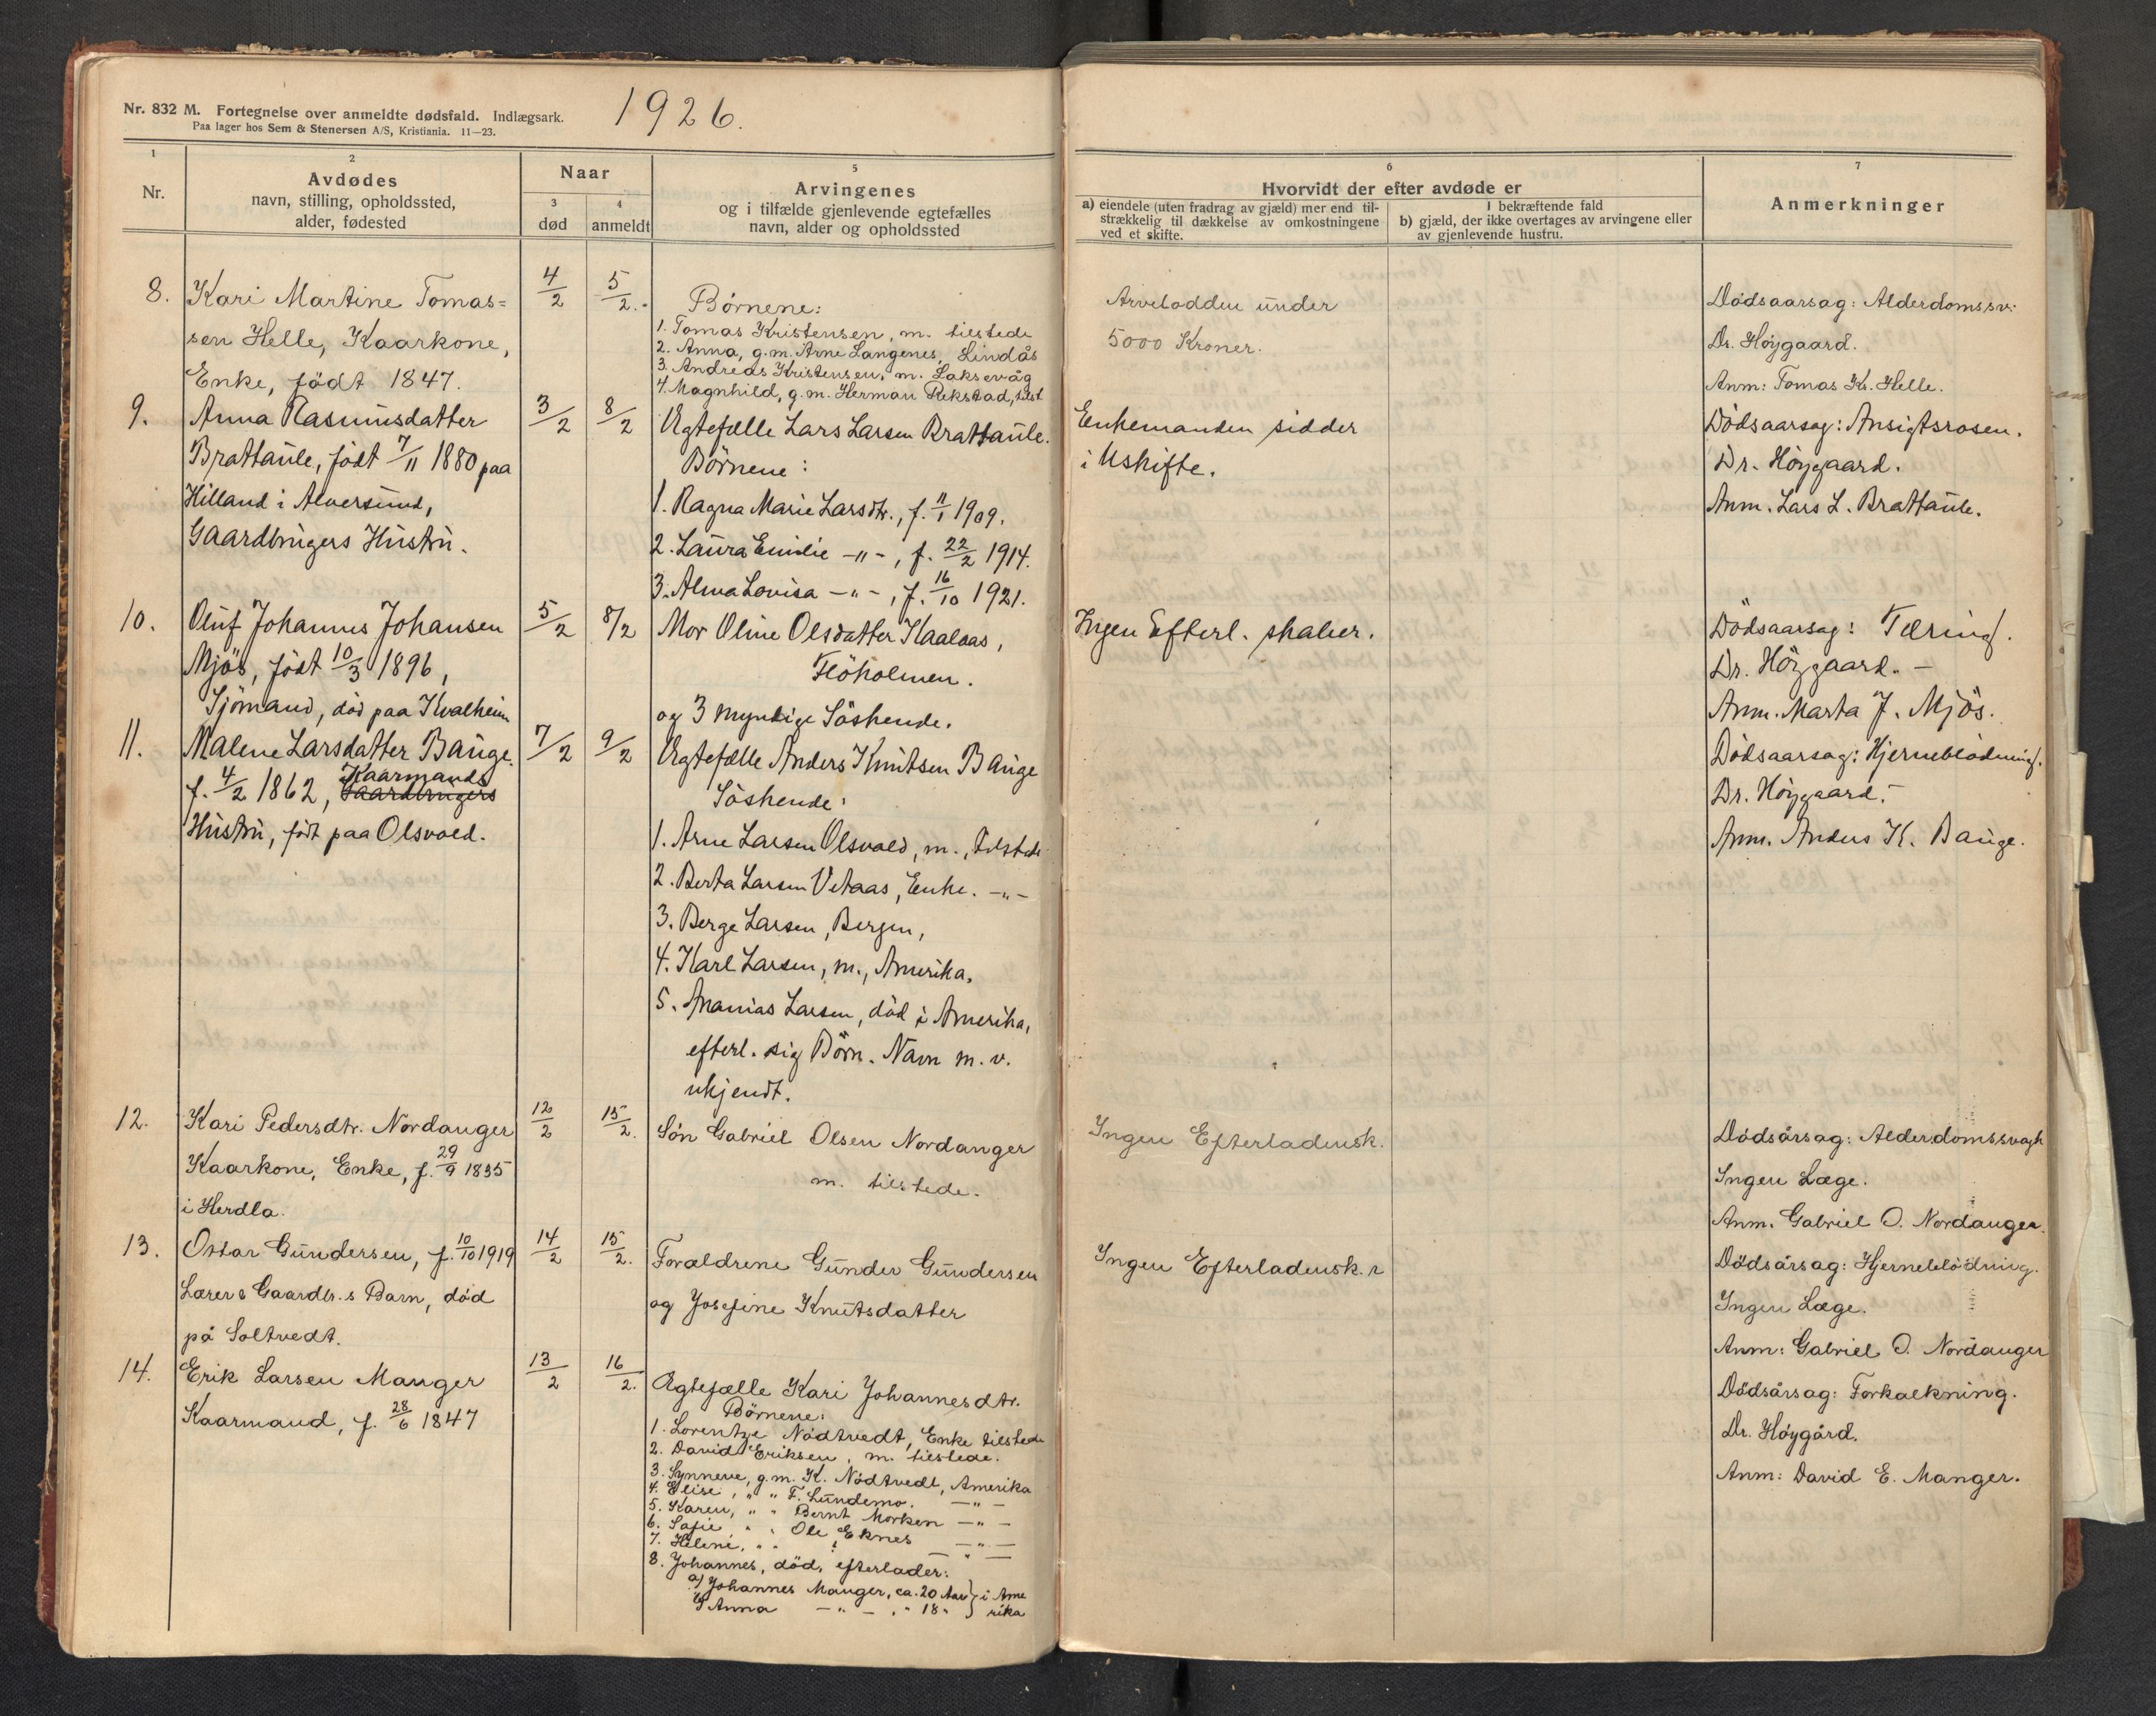 Nr. 832 M. Fortegnelse over anmeldte dødsfald. Indlægsark.
Paa lager hos Sem & Stenersen A/S, Kristiania. 11—23.
1926.
1
Nr.
2
Avdødes
navn, stilling, opholdssted,
alder, fødested
Naar
3
død
4
anmeldt
5
Arvingenes
og i tilfælde gjenlevende egtefælles
navn, alder og opholdssted
6
Hvorvidt der efter avdøde er
a) eiendele (uten fradrag av gjæld) mer end til-
strækkelig til dækkelse av omkostningene
ved et skifte.
I bekræftende fald
b) gjæld, der ikke overtages av arvingene eller
av gjenlevende hustru.
7
Anmerkninger
8.
Kari Martine Tomas=
sen Helle, Kaarkone,
Enke, født 1847.
4/2
5/2.
Börnene:
1. Tomas Kristensen, m. tilstede
2. Anna, g.m. Arne Langenes, Lindås
3. Andreas Kristensen, m. Laksevåg
4. Magnhild, g.m. Herman Rekstad, tilst
Arvelodden under
5000 Kroner.
Dødsaarsag: Alderdomssv.
Dr. Höygaard.
Anm: Tomas Kr. Helle.
9.
Anna Rasmusdatter
Brattaule, født 7/11 1880 paa
Hilland i Alversund,
Gaardbrugers Hustru.
3/2
8/2
Ægtefælle Lars Larsen Brattaule.
Börnene:
1. Ragna Marie Larsdtr., f. 11/1 1909.
2. Laura Emilie -"-, f. 22/2 1914.
3. Alma Lovisa -"-, f. 16/10 1921.
Enkemanden sidder
i Uskifte.
Dødsaarsag: Ansigtsrosen.
Dr. Höygaard.
Anm. Lars L. Brattaule.
10.
Oluf Johannes Johansen
Mjös, født 10/3 1896,
Sjömand, död paa Kvalheim
5/2
8/2
Mor Oline Olsdatter Kaalaas,
Flöholmen.
og 3 myndige Söskende.
Ingen Efterl. skaber.
Dödsaarsag: Tæring.
Dr. Höygaard. -
Anm. Marta J. Mjös.
11.
Malene Larsdatter Bauge.
f. 4/2 1862, Kaarmands Gaardbrugers
Hustru, født paa Olsvold.
7/2
9/2
Ægtefælle Anders Knutsen Bauge
Söskende:
1. Arne Larsen Olsvold, m., tilstede
2. Berta Larsen Vetaas, Enke. -"-
3. Berge Larsen, Bergen,
4. Karl Larsen, m., Amerika.
5. Ananias Larsen, död i Amerika,
efterl. sig Börn. Navn m. v.
ukjendt.
Dödsaarsag: Hjerneblödning.
Dr. Höygaard.
Anm. Anders K. Bauge.
12.
Kari Pedersdtr. Nordanger
Kaarkone, Enke, f. 29/9 1835
i Herdla.
12/2
15/2.
Søn Gabriel Olsen Nordanger
m. tilstede.
Ingen Efterladensk.
Dödsårsag: Alderdomssvagh
Ingen Læge.
Anm. Gabriel O. Nordanger.
13.
Oskar Gundersen, f. 10/10 1919
Lærer & Gaardbr.s Barn, død
på Soltvedt.
14/2
15/2.
Forældrene Gunder Gundersen
og Josefine Knutsdatter
Ingen Efterladensk.r
Dödsårsag: Hjerneblödning.
Ingen Læge.
Anm: Gabriel O. Nordanger
14.
Erik Larsen Manger
Kaarmand, f. 28/6 1847
13/2
16/2.
Ægtefælle Kari Johannesdtr.
Börnene:
1. Lorentze Nödtvedt, Enke tilstede
2. David Eriksen, m. tilstede.
3. Synneve, g.m. K. Nödtvedt, Amerika
4. Elise, " " F. Lundemo. -"-
5. Karen, " " Bernt Morken -"-
6. Sofie, " " Ole Eknes -"-
7. Helene, " " -"-
8. Johannes, død, efterlader:
a) Johannes Manger, ca. 20 Aar } i Ame
b) Anna -"-, " 18 " } rika
Dödsårsag: Forkalkning.
Dr. Höygård.
Anm: David E. Manger.